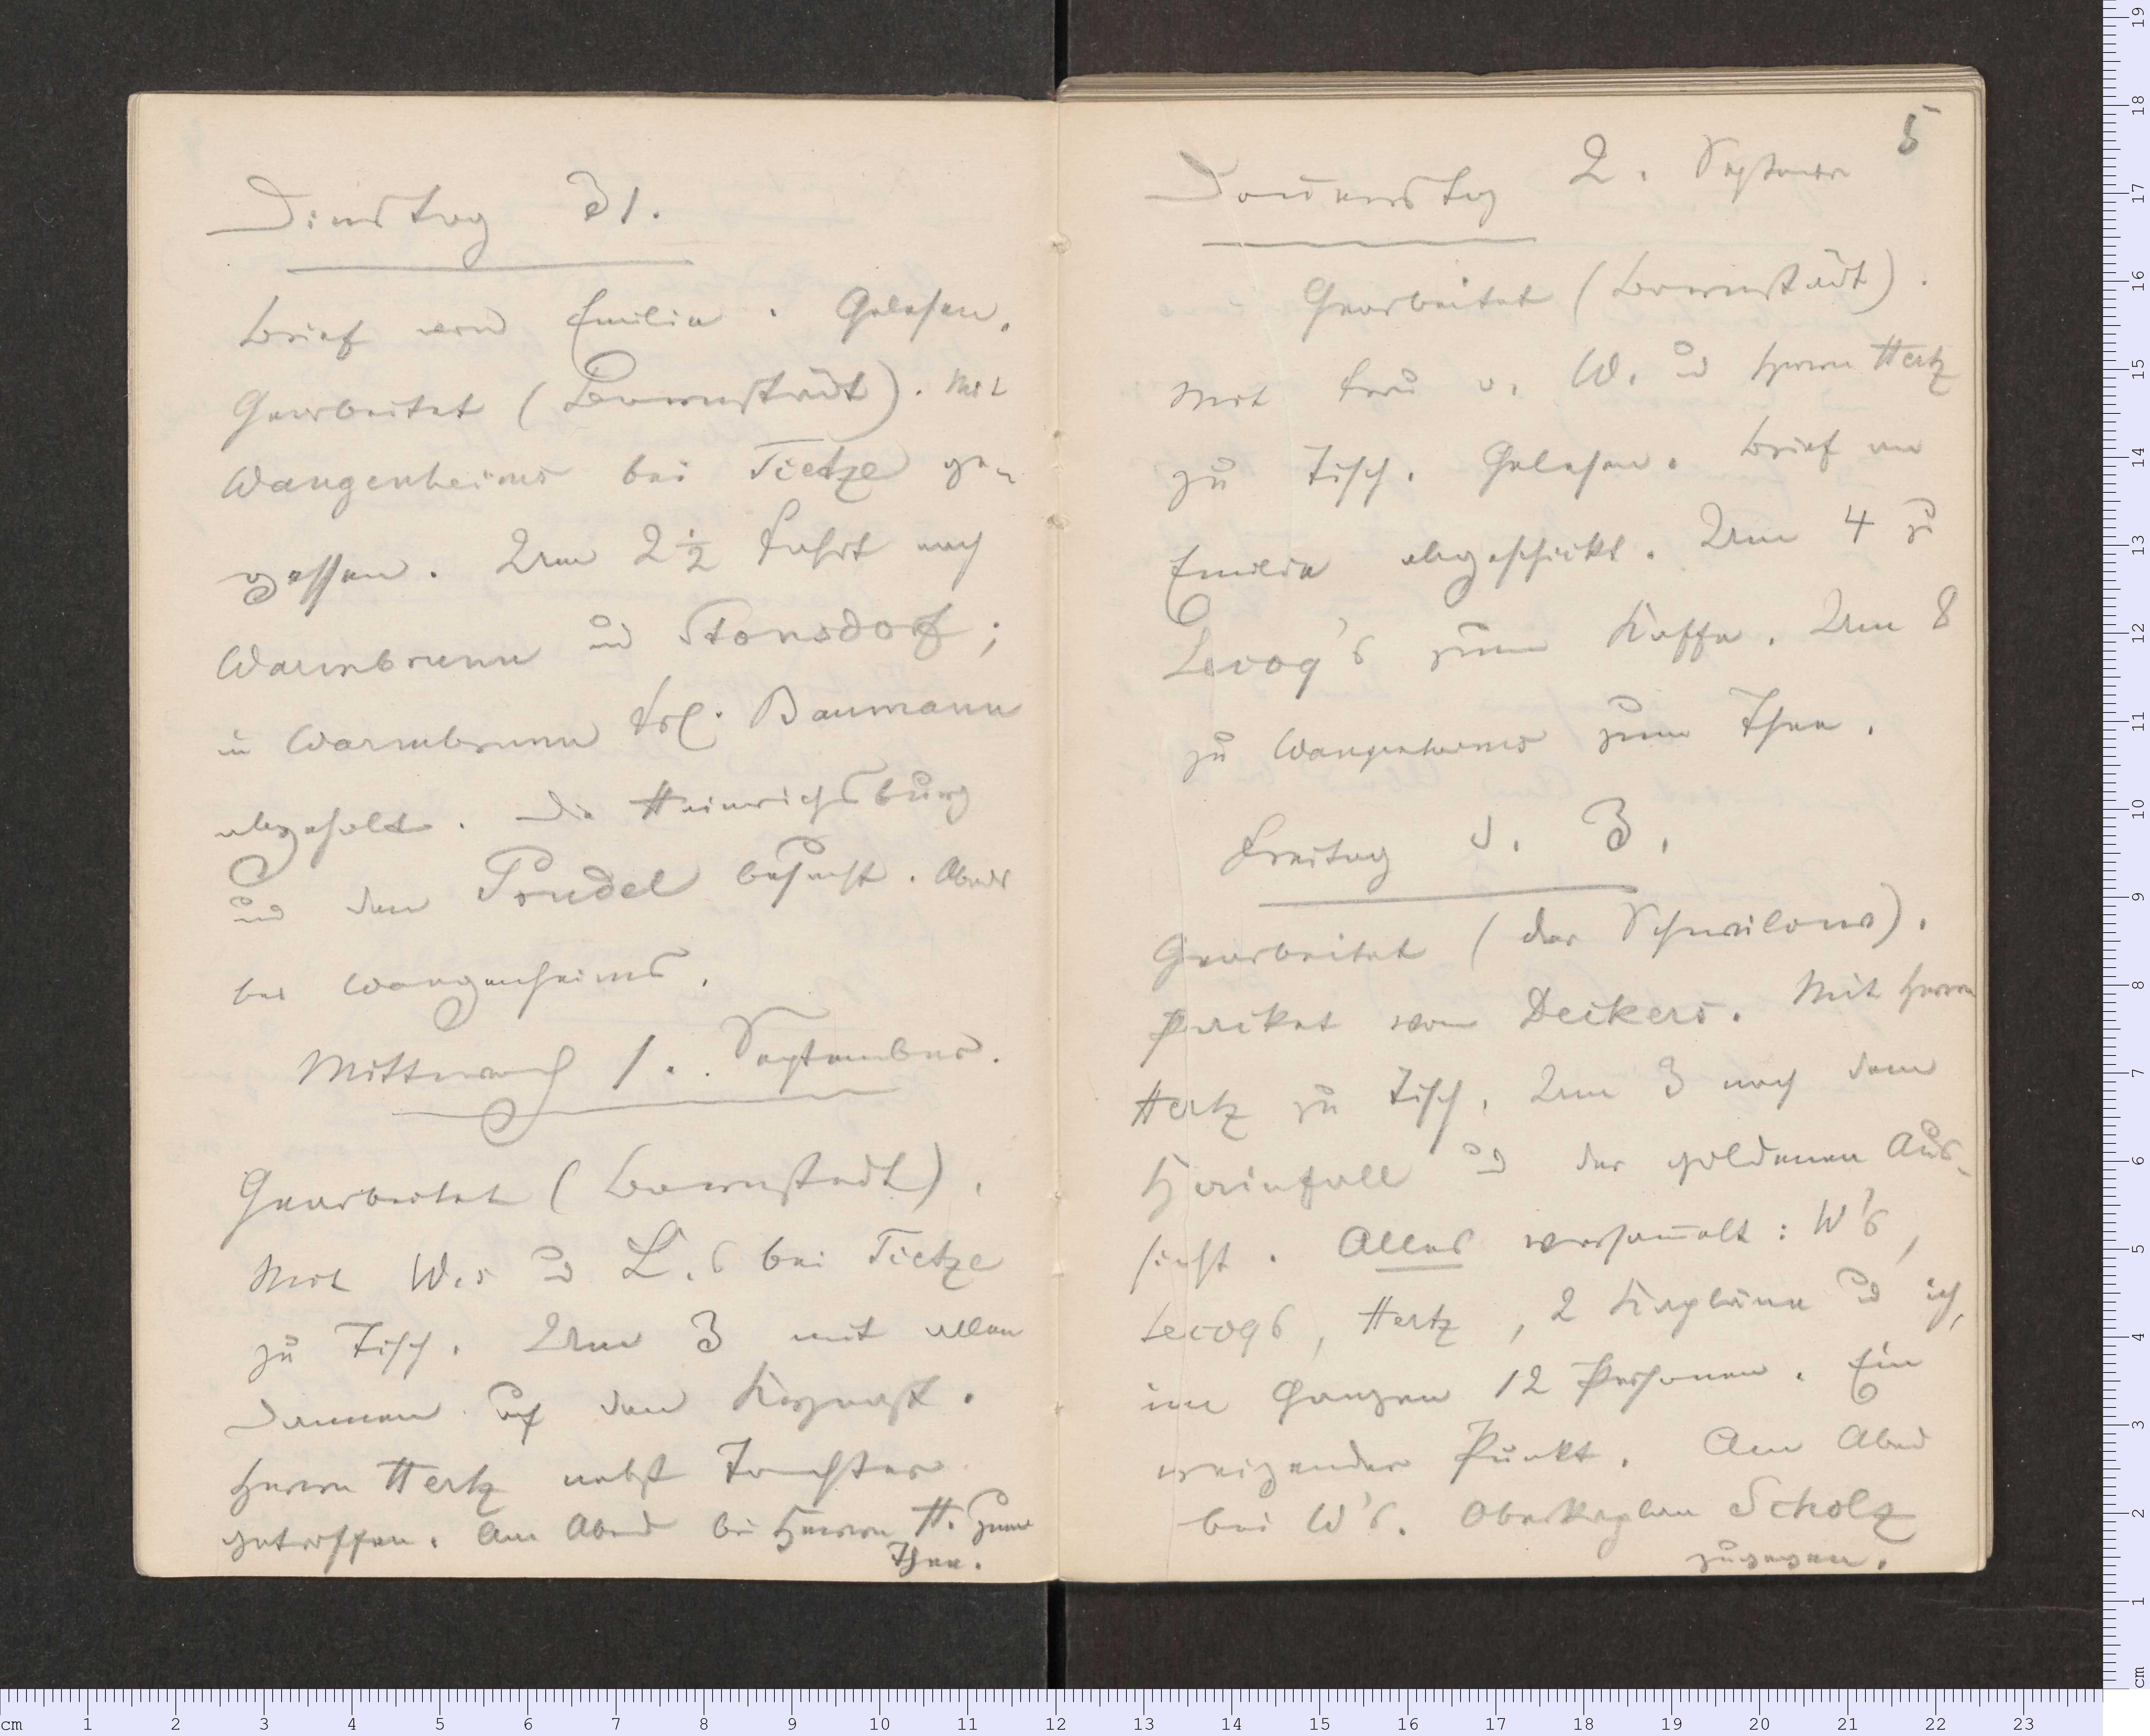 Dinstag 31.
Brief von Emilie. Gelesen.
Gearbeitet (Bornstädt). Mit
Wangenheims bei Tietze ge-
gessen. Um 2 ½ Fahrt nach
Warmbrunn und Stonsdorf;
in Warmbrunn Frl. Baumann
abgeholt. Die Heinrichsburg
und den Prudel besucht. Abends
bei Wangenheims.
Mittwoch 1. September.
Gearbeitet (Bornstedt).
Mit W.s und L.s bei Tietze
zu Tisch. Um 3 mit allen
Damen auf den Kynast.
Herrn Hertz nebst Tochter
getroffen. Am Abend bei Herrn H. zum
Thee.
5
Donnerstag 2. September
Gearbeitet (Bornstädt).
Mit Frau v. W. und Herrn Hertz
zu Tisch. Gelesen. Brief an
Emilie abgeschickt. Um 4 zu
Lecoq's zum Kaffe. Um 8
zu Wangenheims zum Thee.
Freitag d. 3.
Gearbeitet (der Schwilow).
Packet von Deckers. Mit Herrn
Hertz zu Tisch. Um 3 nach dem
Hainfall und der goldenen Aus-
sicht. Alles versam̄elt: W's,
Lecoqs, Hertz, 2 Kapläne und ich,
im Ganzen 12 Personen. Ein
reizender Punkt. Am Abend
bei W's. Oberkaplan Scholz
zugegen.